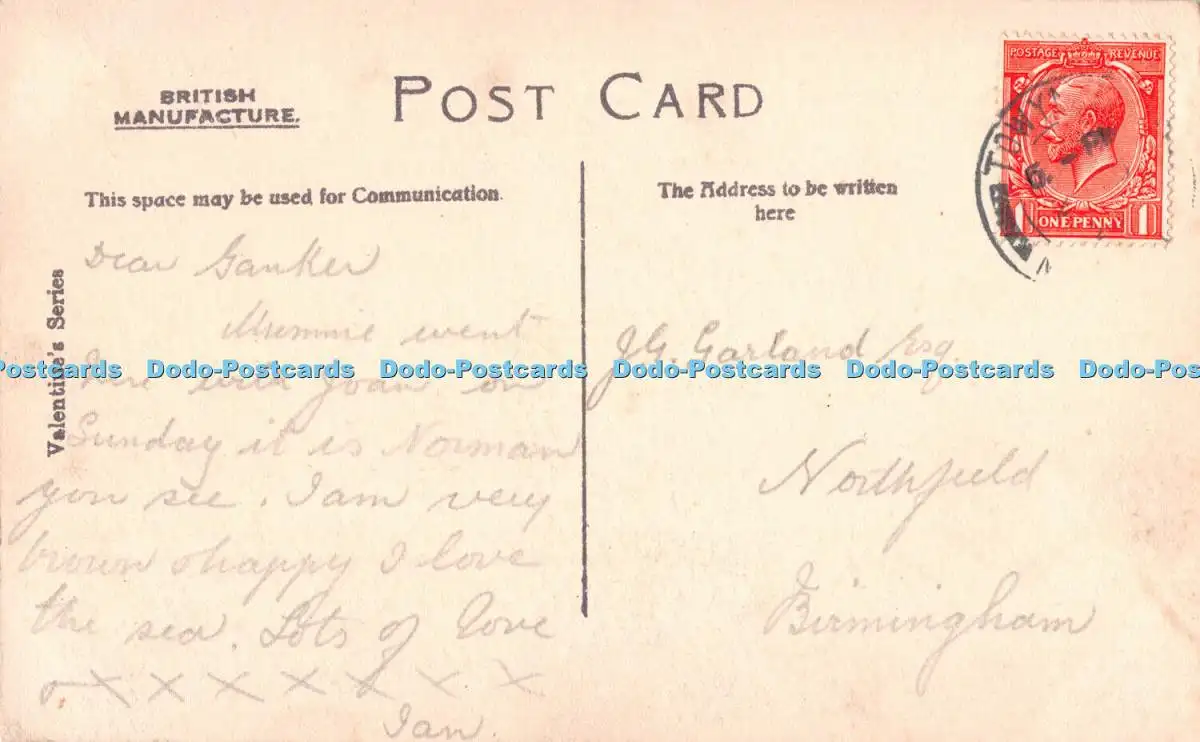 POST CARD
BRITISH
MANUFACTURE.
POSTAGE REVENUE
1 ONE·PENNY 1
TOWY
This space may be used for Communication.
The Address to be written
here
Valentine's Series
Dear Ganker
Mummie went
here with Joan on
Sunday it is Norman
you see. I am very
brown & happy I love
the sea. Lots of love
& X X X X X X X
Ian.
J.G. Garland Esq.
Northfield
Birmingham
Postcards Dodo-Postcards Dodo-Postcards Dodo-Postcards Dodo-Postcards Dodo-Pos